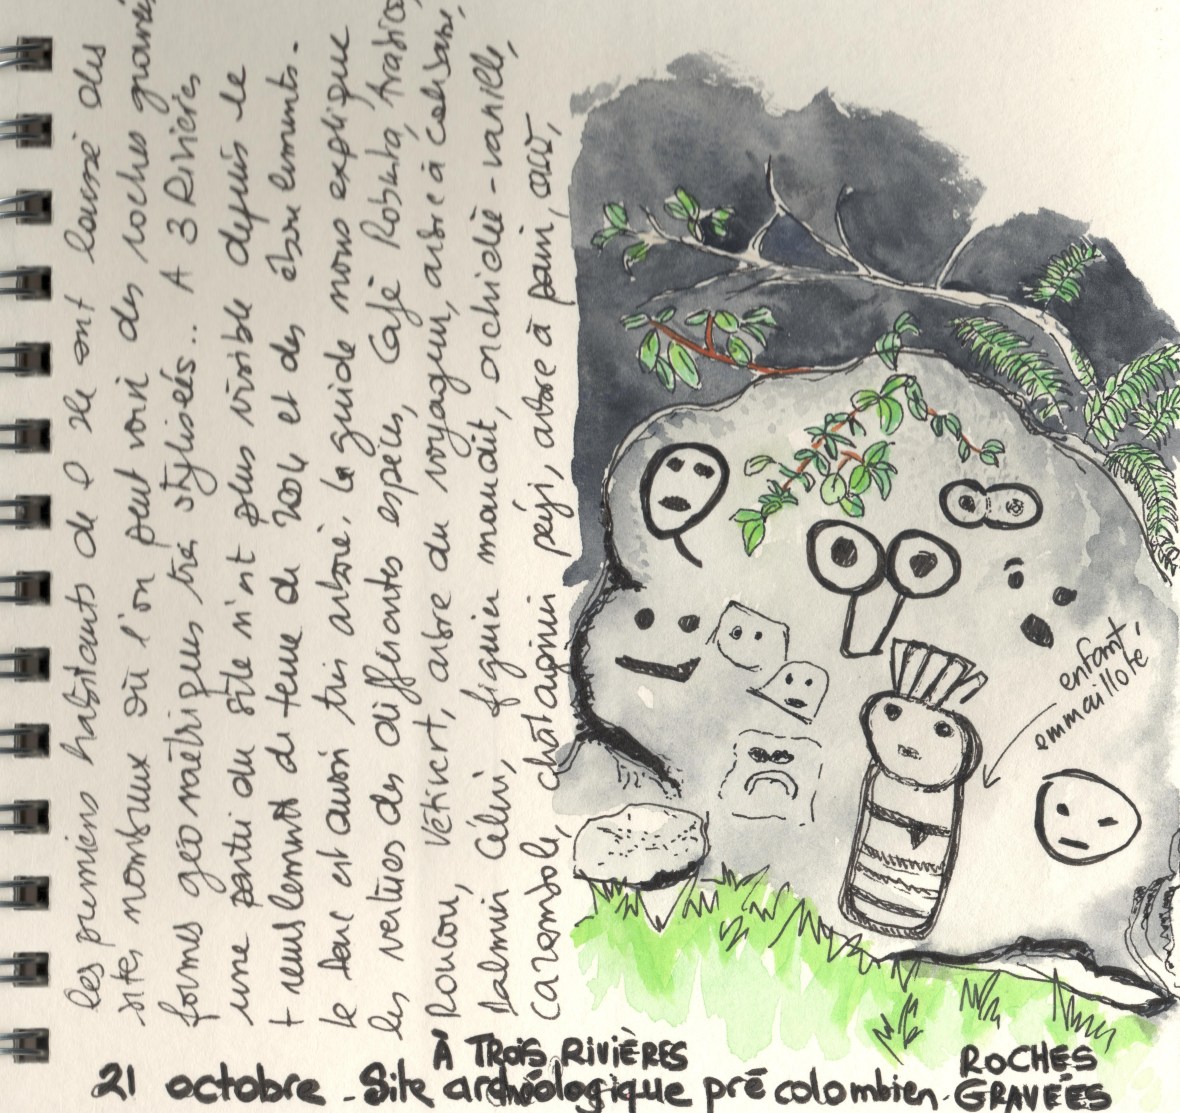 les premiers habitants de l'île ont laissé des
sites nombreux où l'on peut voir des roches gravées
formes géométriques très stylisées... A 3 Rivières
une partie du site n'est plus visible depuis le
tremblement de terre de 2004 et des éboulements.
le parc est aussi très arboré, la guide nous explique
les vertues des différentes espèces, Café Robusta, trabica,
Roucou, Vétivert, arbre du voyageur, arbre à calebasse,
Palmier Céleri, figuier maudit, orchidée-vanille,
carambole, châtaignier péyi, arbre à pain, cacao,
enfant
emmailloté
À TROIS RIVIÈRES
21 octobre - Site archéologique pré colombien. ROCHES
GRAVÉES